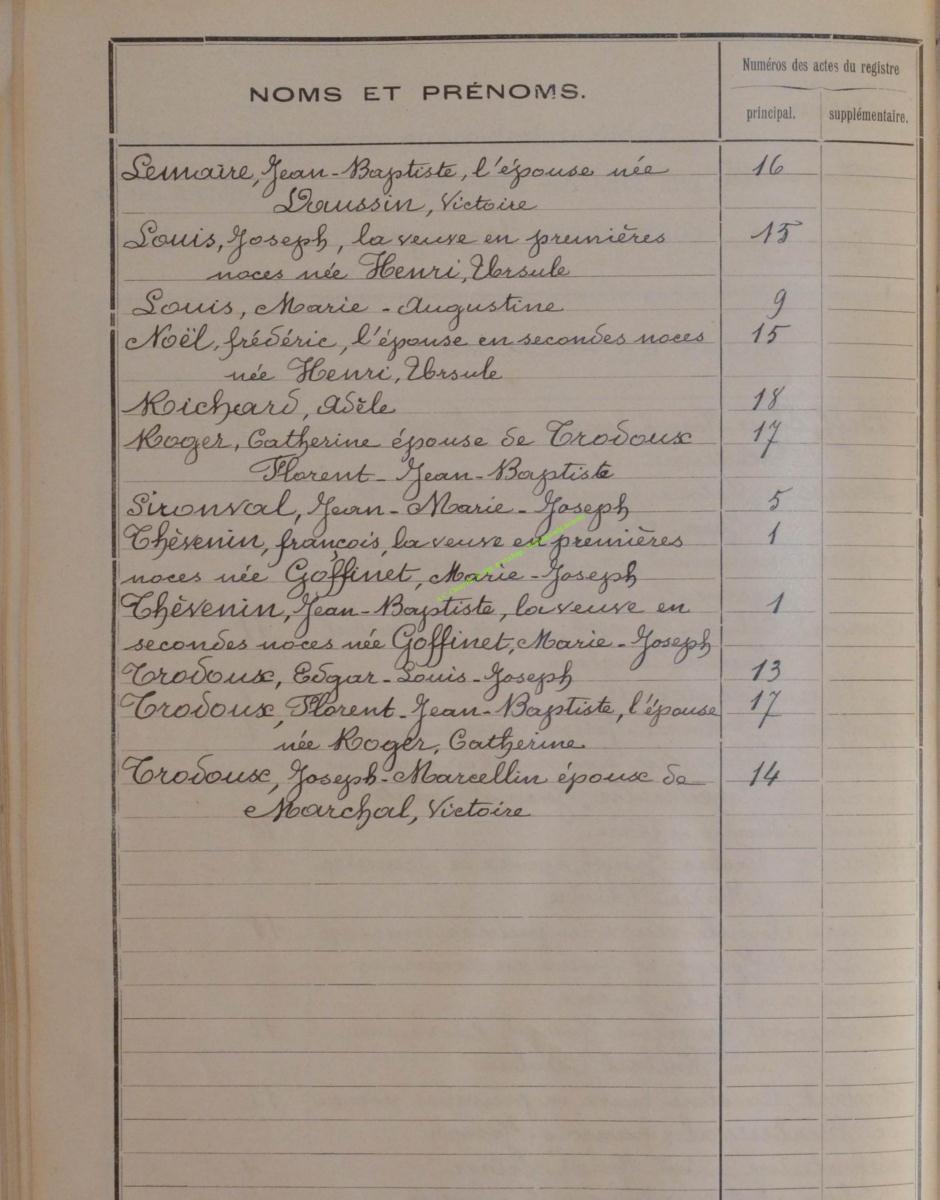 NOMS ET PRÉNOMS.
Numéros des actes du registre
principal.
supplémentaire.
Lemaire, Jean-Baptiste, l'épouse née 16
Daussin, Victoire
Louis, Joseph, la veuve en premières 15
noces née Henri, Ursule
Louis, Marie-Augustine 9
Noël, frédéric, l'épouse en secondes noces 15
née Henri, Ursule
Richard, Adèle 18
Roger, Catherine épouse de Trodoux 17
Florent-Jean-Baptiste
Sironval, Jean-Marie-Joseph 5
Thèvenin, françois, la veuve en premières 1
noces née Goffinet, Marie-Joseph
Thèvenin, Jean-Baptiste, la veuve en 1
secondes noces née Goffinet, Marie-Joseph
Trodoux, Edgar-Louis-Joseph 13
Trodoux, Florent-Jean-Baptiste, l'épouse 17
née Roger, Catherine
Trodoux, Joseph-Marcellin époux de 14
Marchal, Victoire